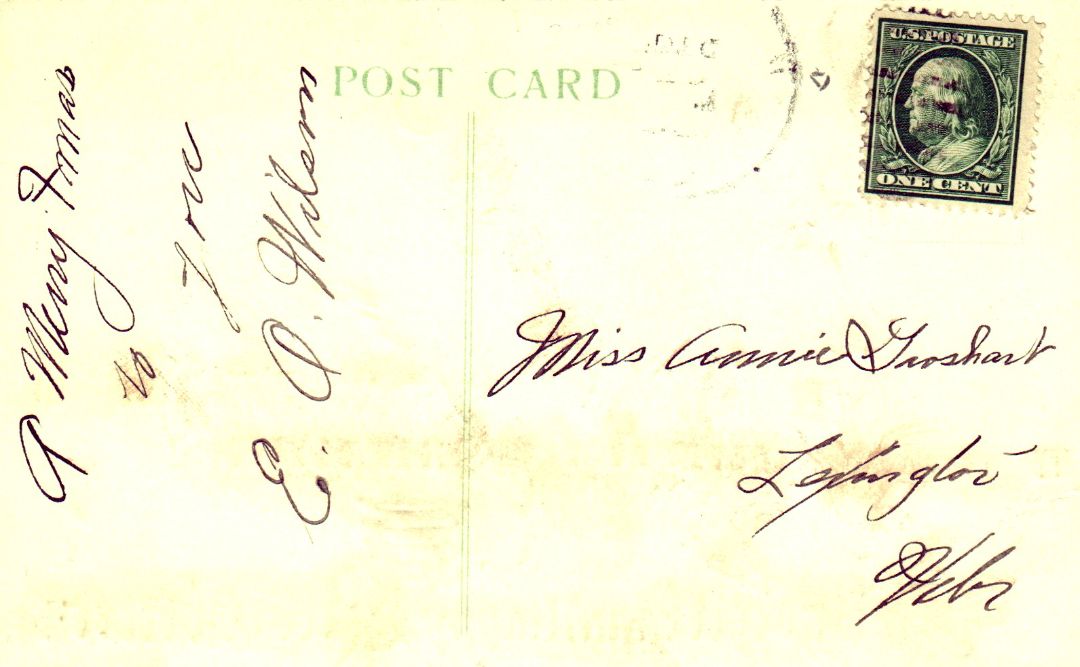 POST CARD
U.S. POSTAGE
ONE CENT
A Merry Xmas
to you
E. A. Wilson
Miss Annie Groshart
Lexington
Nebr